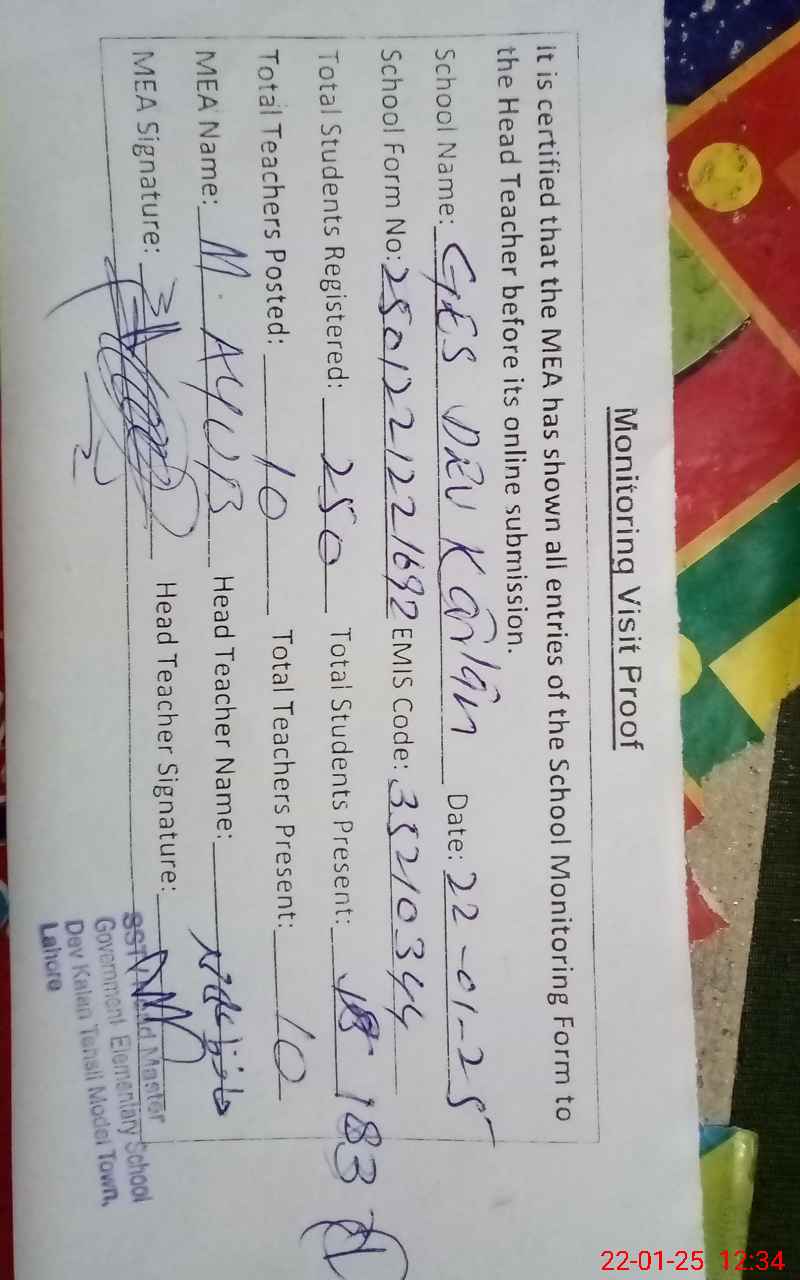 Monitoring Visit Proof
It is certified that the MEA has shown all entries of the School Monitoring Form to
the Head Teacher before its online submission.
School Name: GES DEV Kalan Date: 22-01-25
School Form No: 2501221221692 EMIS Code: 35210344
Total Students Registered: 250 Total Students Present: 183
Total Teachers Posted: 10 Total Teachers Present: 10
MEA Name: M. AYUB Head Teacher Name:
MEA Signature: Head Teacher Signature:
SST Head Master
Government Elementary School
Dev Kalan Tehsil Model Town,
Lahore
22-01-25 12:34